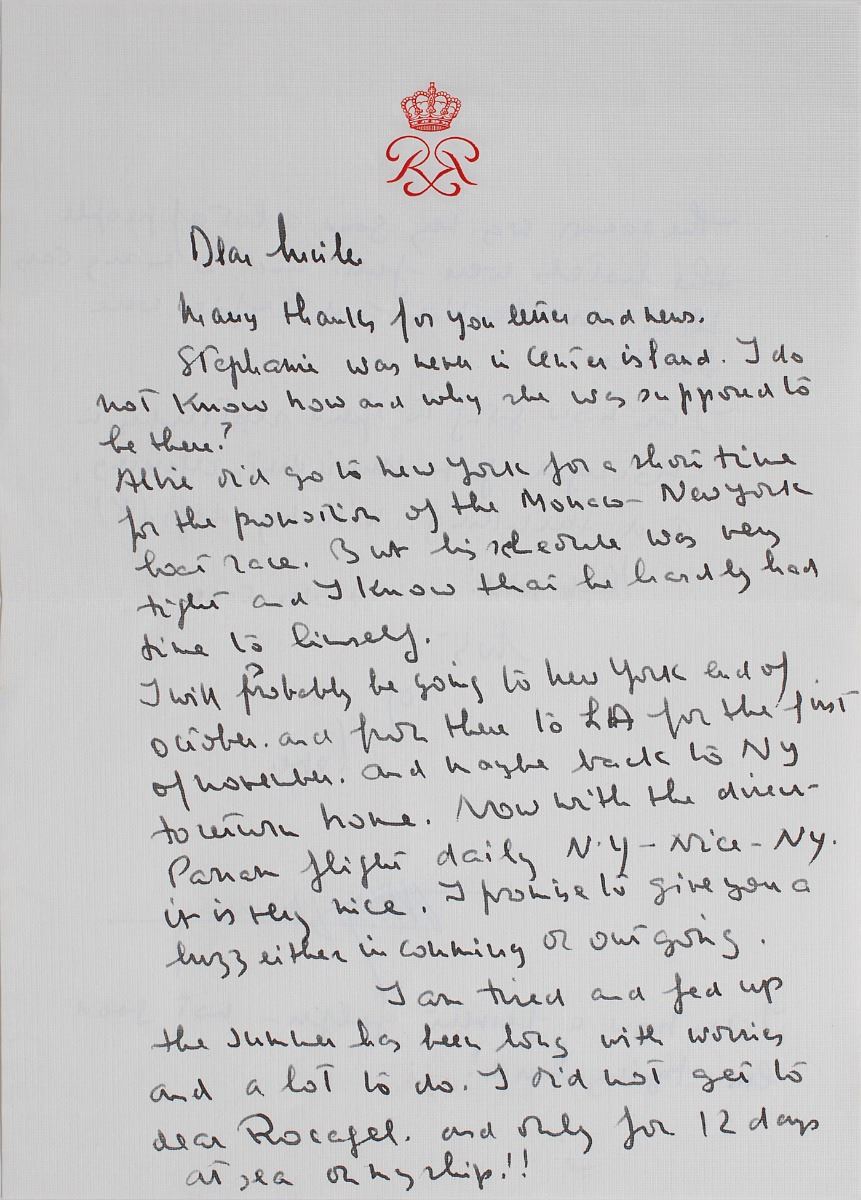 Dear Lucile
Many thanks for you letter and news.
Stephanie was never in Center island. I do
not know how and why she was supposed to
be there?
Albie did go to New York for a short time
for the promotion of the Monaco-New York
boat race. But his schedule was very
tight and I know that he hardly had
time to himself.
I will probably be going to New York end of
October. and from there to LA for the first
of november. and maybe back to NY
to return home. Now with the direct-
Panam flight daily N.Y-Nice-NY.
it is very nice. I promise to give you a
buzz either in comming or out going.
I am tired and fed up
the summer has been long with worries
and a lot to do. I did not get to
dear Rocagel. and only for 12 days
at sea on my ship!!